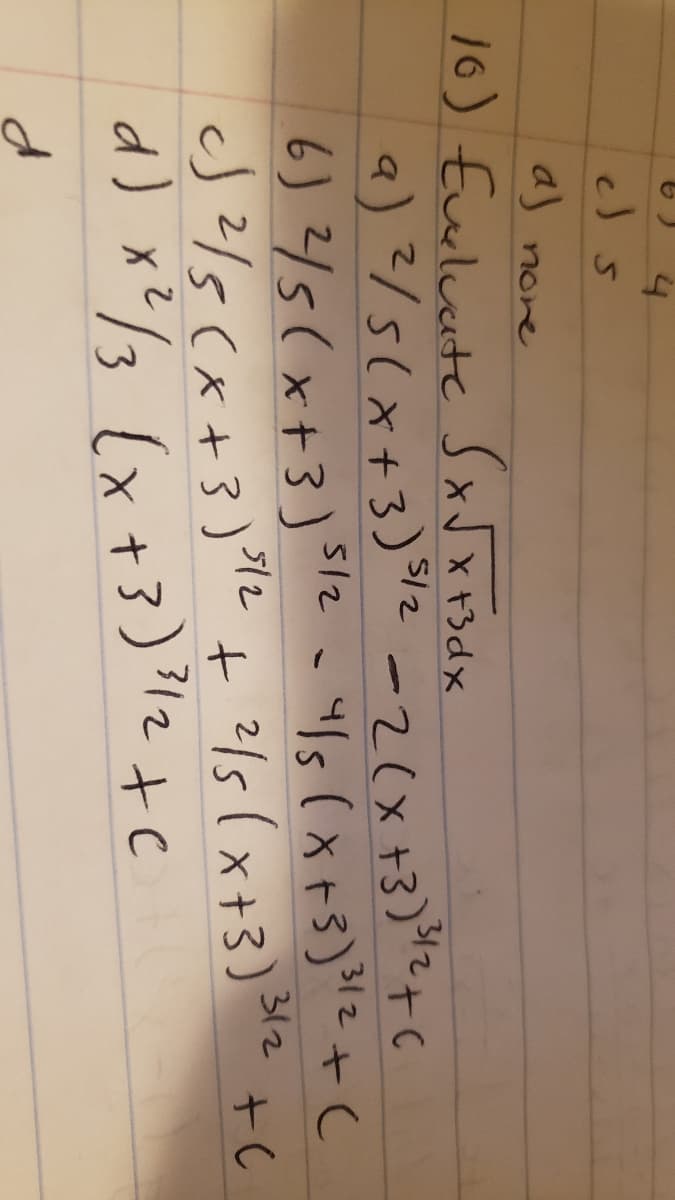 b) 4
c) 5
d) none
10) Evaluate ∫x√x+3dx
a) 2/5(x+3)^5/2 - 2(x+3)^3/2 + c
b) 2/5(x+3)^5/2 - 4/5(x+3)^3/2 + C
c) 2/5(x+3)^5/2 + 2/5(x+3)^3/2 + C
d) x^2/3 (x+3)^3/2 + C
d